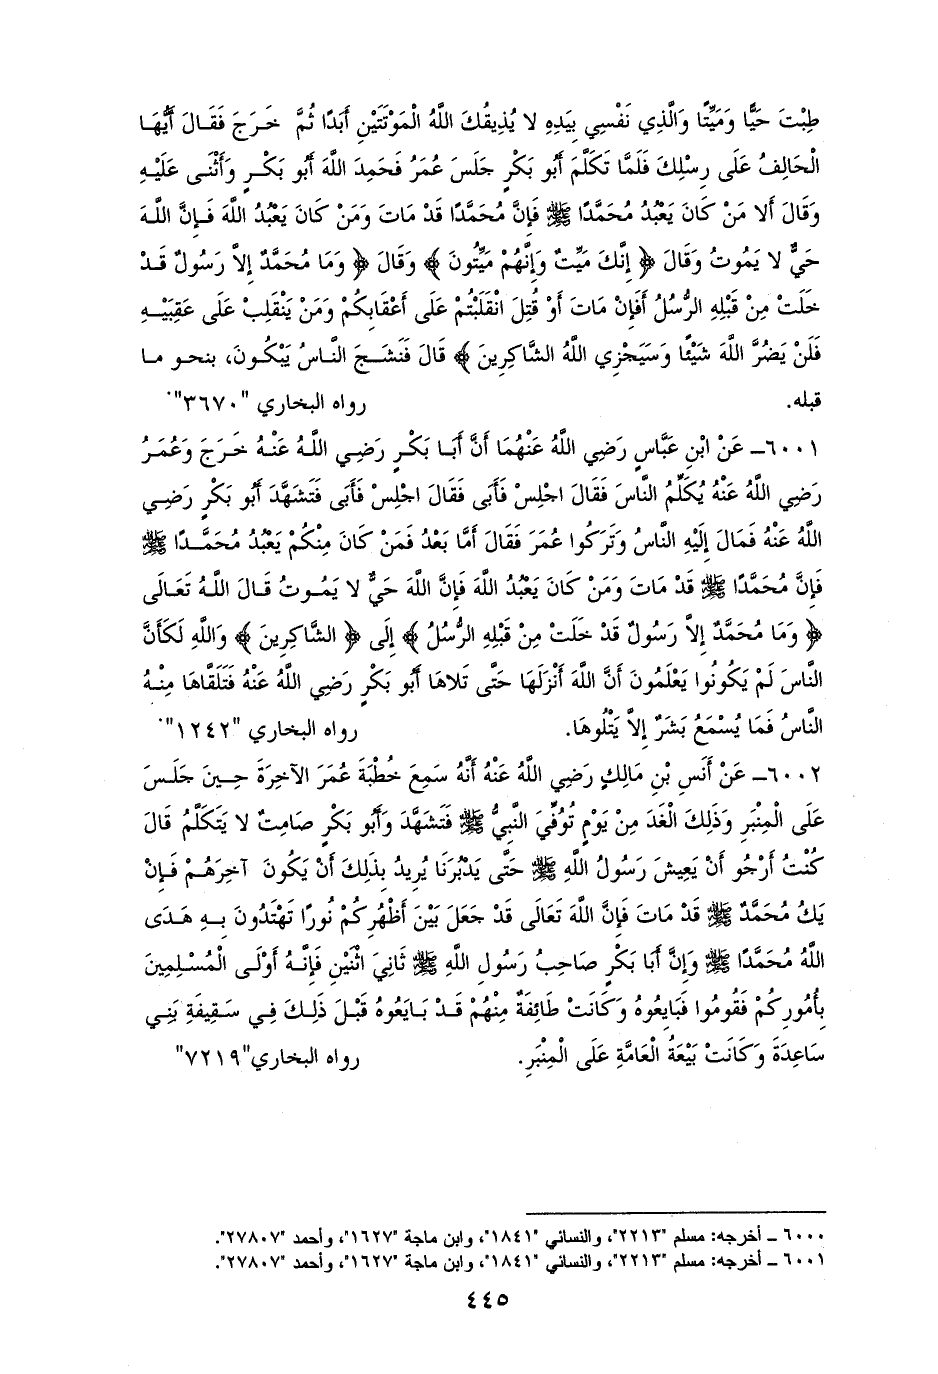 طِبْتَ حَيًّا وَمَيِّتًا وَالَّذِي نَفْسِي بِيَدِهِ لا يُذِيقُكَ اللَّهُ الْمَوْتَتَيْنِ أَبَدًا ثُمَّ خَرَجَ فَقَالَ أَيُّهَا
الْحَالِفُ عَلَى رِسْلِكَ فَلَمَّا تَكَلَّمَ أَبُو بَكْرٍ جَلَسَ عُمَرُ فَحَمِدَ اللَّهَ أَبُو بَكْرٍ وَأَثْنَى عَلَيْهِ
وَقَالَ أَلا مَنْ كَانَ يَعْبُدُ مُحَمَّدًا ﷺ فَإِنَّ مُحَمَّدًا قَدْ مَاتَ وَمَنْ كَانَ يَعْبُدُ اللَّهَ فَإِنَّ اللَّهَ
حَيٌّ لا يَمُوتُ وَقَالَ ﴿ إِنَّكَ مَيِّتٌ وَإِنَّهُمْ مَيِّتُونَ ﴾ وَقَالَ ﴿ وَمَا مُحَمَّدٌ إِلاَّ رَسُولٌ قَدْ
خَلَتْ مِنْ قَبْلِهِ الرُّسُلُ أَفَإِنْ مَاتَ أَوْ قُتِلَ انْقَلَبْتُمْ عَلَى أَعْقَابِكُمْ وَمَنْ يَنْقَلِبْ عَلَى عَقِبَيْهِ
فَلَنْ يَضُرَّ اللَّهَ شَيْئًا وَسَيَجْزِي اللَّهُ الشَّاكِرِينَ ﴾ قَالَ فَنَشَجَ النَّاسُ يَبْكُونَ، بنحو ما
قبله. رواه البخاري "٣٦٧٠".
٦٠٠١ـ عَنْ ابْنِ عَبَّاسٍ رَضِيَ اللَّهُ عَنْهُمَا أَنَّ أَبَا بَكْرٍ رَضِيَ اللَّهُ عَنْهُ خَرَجَ وَعُمَرُ
رَضِيَ اللَّهُ عَنْهُ يُكَلِّمُ النَّاسَ فَقَالَ اجْلِسْ فَأَبَى فَقَالَ اجْلِسْ فَأَبَى فَتَشَهَّدَ أَبُو بَكْرٍ رَضِيَ
اللَّهُ عَنْهُ فَمَالَ إِلَيْهِ النَّاسُ وَتَرَكُوا عُمَرَ فَقَالَ أَمَّا بَعْدُ فَمَنْ كَانَ مِنْكُمْ يَعْبُدُ مُحَمَّدًا ﷺ
فَإِنَّ مُحَمَّدًا ﷺ قَدْ مَاتَ وَمَنْ كَانَ يَعْبُدُ اللَّهَ فَإِنَّ اللَّهَ حَيٌّ لا يَمُوتُ قَالَ اللَّهُ تَعَالَى
﴿ وَمَا مُحَمَّدٌ إِلاَّ رَسُولٌ قَدْ خَلَتْ مِنْ قَبْلِهِ الرُّسُلُ ﴾ إِلَى ﴿ الشَّاكِرِينَ ﴾ وَاللَّهِ لَكَأَنَّ
النَّاسَ لَمْ يَكُونُوا يَعْلَمُونَ أَنَّ اللَّهَ أَنْزَلَهَا حَتَّى تَلاهَا أَبُو بَكْرٍ رَضِيَ اللَّهُ عَنْهُ فَتَلَقَّاهَا مِنْهُ
النَّاسُ فَمَا يُسْمَعُ بَشَرٌ إِلاَّ يَتْلُوهَا. رواه البخاري "١٢٤٢".
٦٠٠٢ـ عَنْ أَنَسِ بْنِ مَالِكٍ رَضِيَ اللَّهُ عَنْهُ أَنَّهُ سَمِعَ خُطْبَةَ عُمَرَ الآخِرَةَ حِينَ جَلَسَ
عَلَى الْمِنْبَرِ وَذَلِكَ الْغَدَ مِنْ يَوْمٍ تُوُفِّيَ النَّبِيُّ ﷺ فَتَشَهَّدَ وَأَبُو بَكْرٍ صَامِتٌ لا يَتَكَلَّمُ قَالَ
كُنْتُ أَرْجُو أَنْ يَعِيشَ رَسُولُ اللَّهِ ﷺ حَتَّى يَدْبُرَنَا يُرِيدُ بِذَلِكَ أَنْ يَكُونَ آخِرَهُمْ فَإِنْ
يَكُ مُحَمَّدٌ ﷺ قَدْ مَاتَ فَإِنَّ اللَّهَ تَعَالَى قَدْ جَعَلَ بَيْنَ أَظْهُرِكُمْ نُورًا تَهْتَدُونَ بِهِ هَدَى
اللَّهُ مُحَمَّدًا ﷺ وَإِنَّ أَبَا بَكْرٍ صَاحِبُ رَسُولِ اللَّهِ ﷺ ثَانِيَ اثْنَيْنِ فَإِنَّهُ أَوْلَى الْمُسْلِمِينَ
بِأُمُورِكُمْ فَقُومُوا فَبَايِعُوهُ وَكَانَتْ طَائِفَةٌ مِنْهُمْ قَدْ بَايَعُوهُ قَبْلَ ذَلِكَ فِي سَقِيفَةِ بَنِي
سَاعِدَةَ وَكَانَتْ بَيْعَةُ الْعَامَّةِ عَلَى الْمِنْبَرِ. رواه البخاري"٧٢١٩"
٦٠٠٠ ـ أخرجه: مسلم "٢٢١٣"، والنسائي "١٨٤١"، وابن ماجة "١٦٢٧"، وأحمد "٢٧٨٠٧".
٦٠٠١ ـ أخرجه: مسلم "٢٢١٣"، والنسائي "١٨٤١"، وابن ماجة "١٦٢٧"، وأحمد "٢٧٨٠٧".
٤٤٥